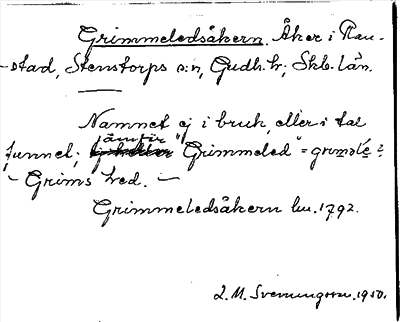 Grimmeledsåkern. Åker i Rau-
-stad, Stenstorps s:n, Gudh. hr; Skb. län.
Namnet ej i bruk, eller i tal
funnet; jämför "Grimmeled" =
- Grims led. -
Grimmeledsåkern hu. 1792.
L. M. Svenungsson. 1950.